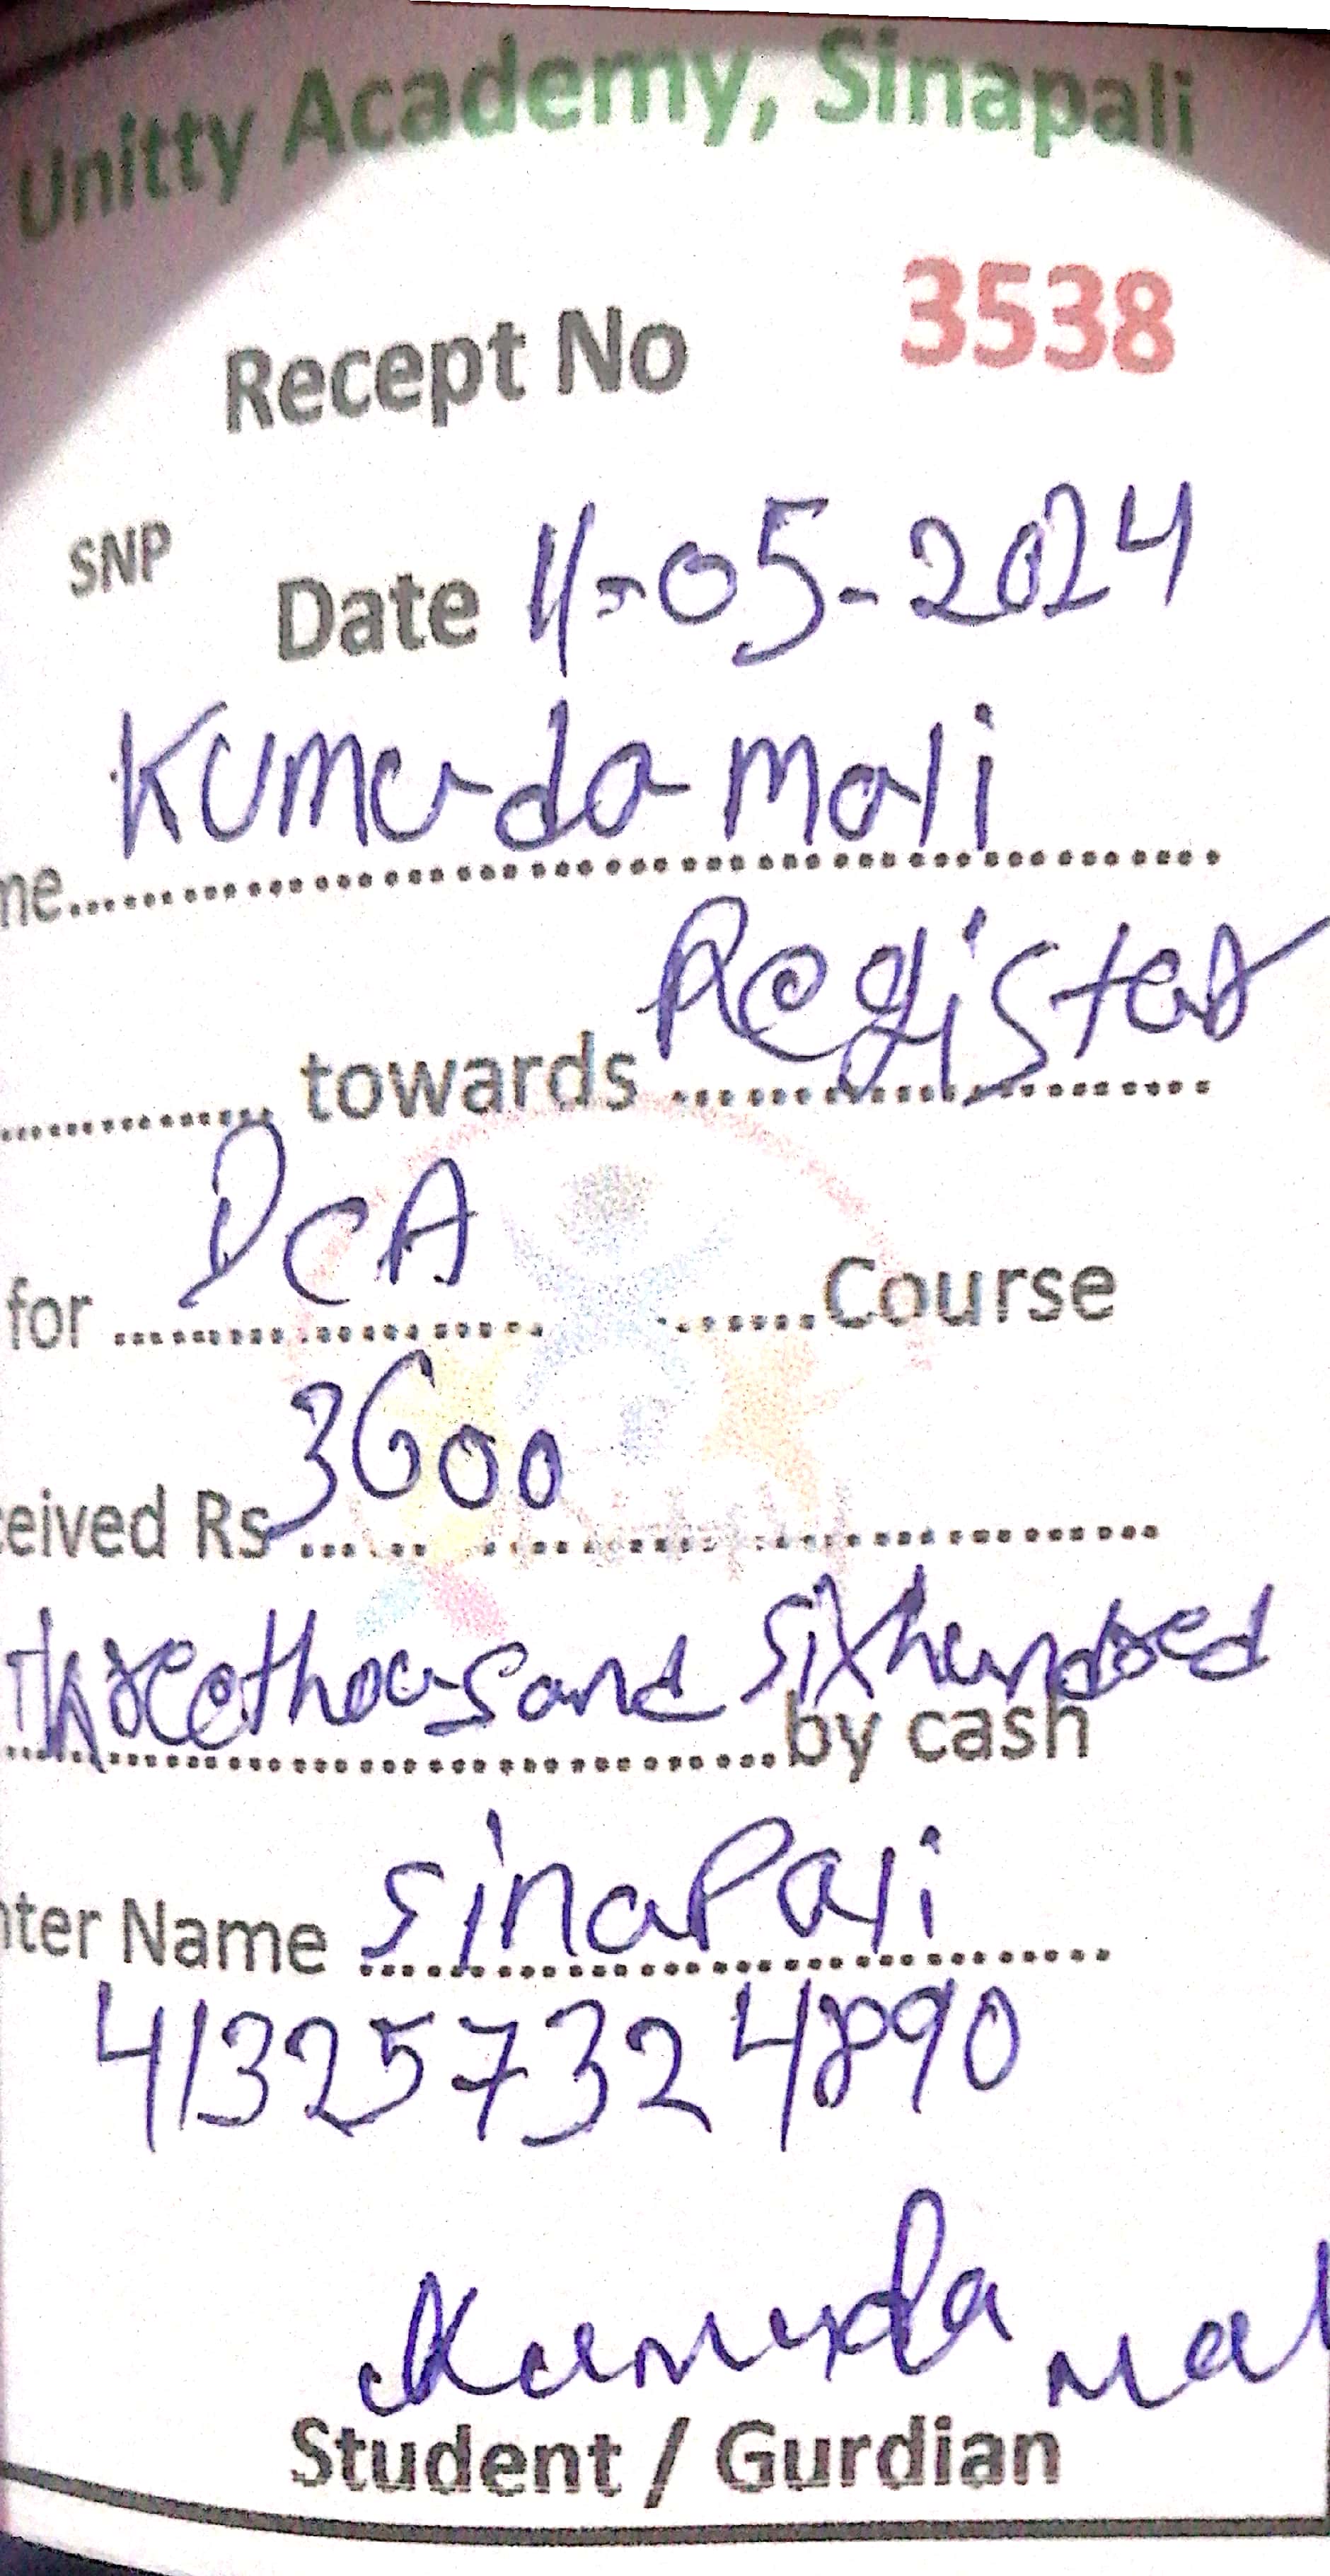 Unitty Academy, Sinapali
Recept No 3538
SNP
Date 11-05-2024
Kumuda mali
me..............................
............ towards Register
for DCA Course
ceived Rs 3600
Threethousand Sixhundred
by cash
nter Name SinaPali
413257324890
Kumuda Mal
Student / Gurdian